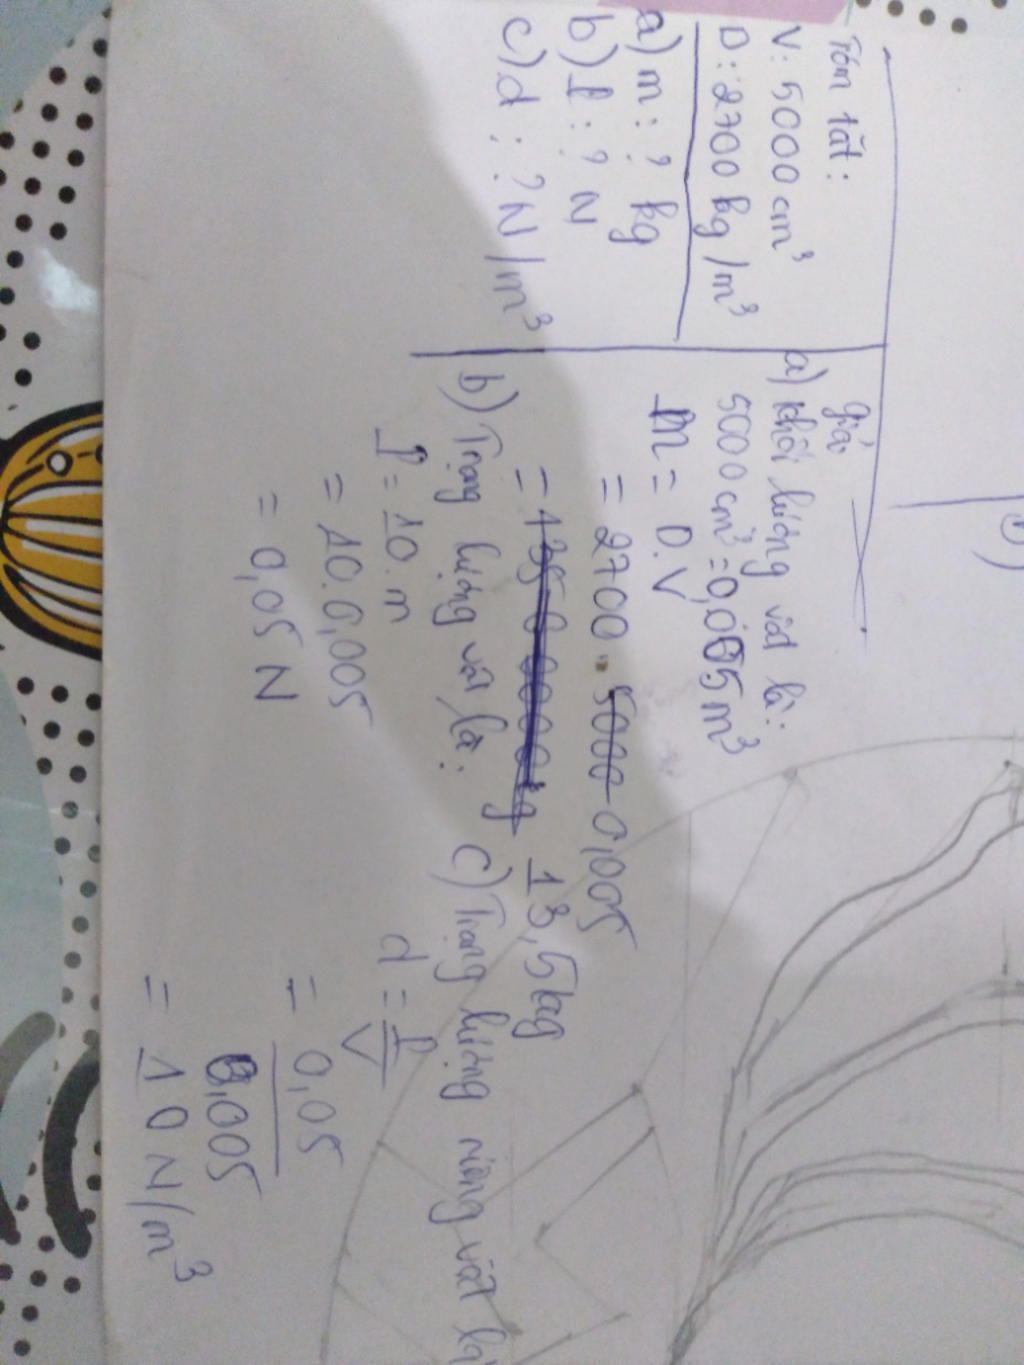 Tóm tắt:
V: 5000 cm³
D: 2700 kg/m³
a) m: ? kg
b) P: ? N
c) d: ? N/m³
giải
a) khối lượng vật là:
5000 cm³ = 0,005 m³
m = D.V
= 2700 . 5000 0,005
= 13500000 kg 13,5kg
b) Trọng lượng vật là:
P = 10.m
= 10.0,005
= 0,05 N
c) Trọng lượng riêng vật là
d = P
V
= 0,05
0,005
= 10 N/m³